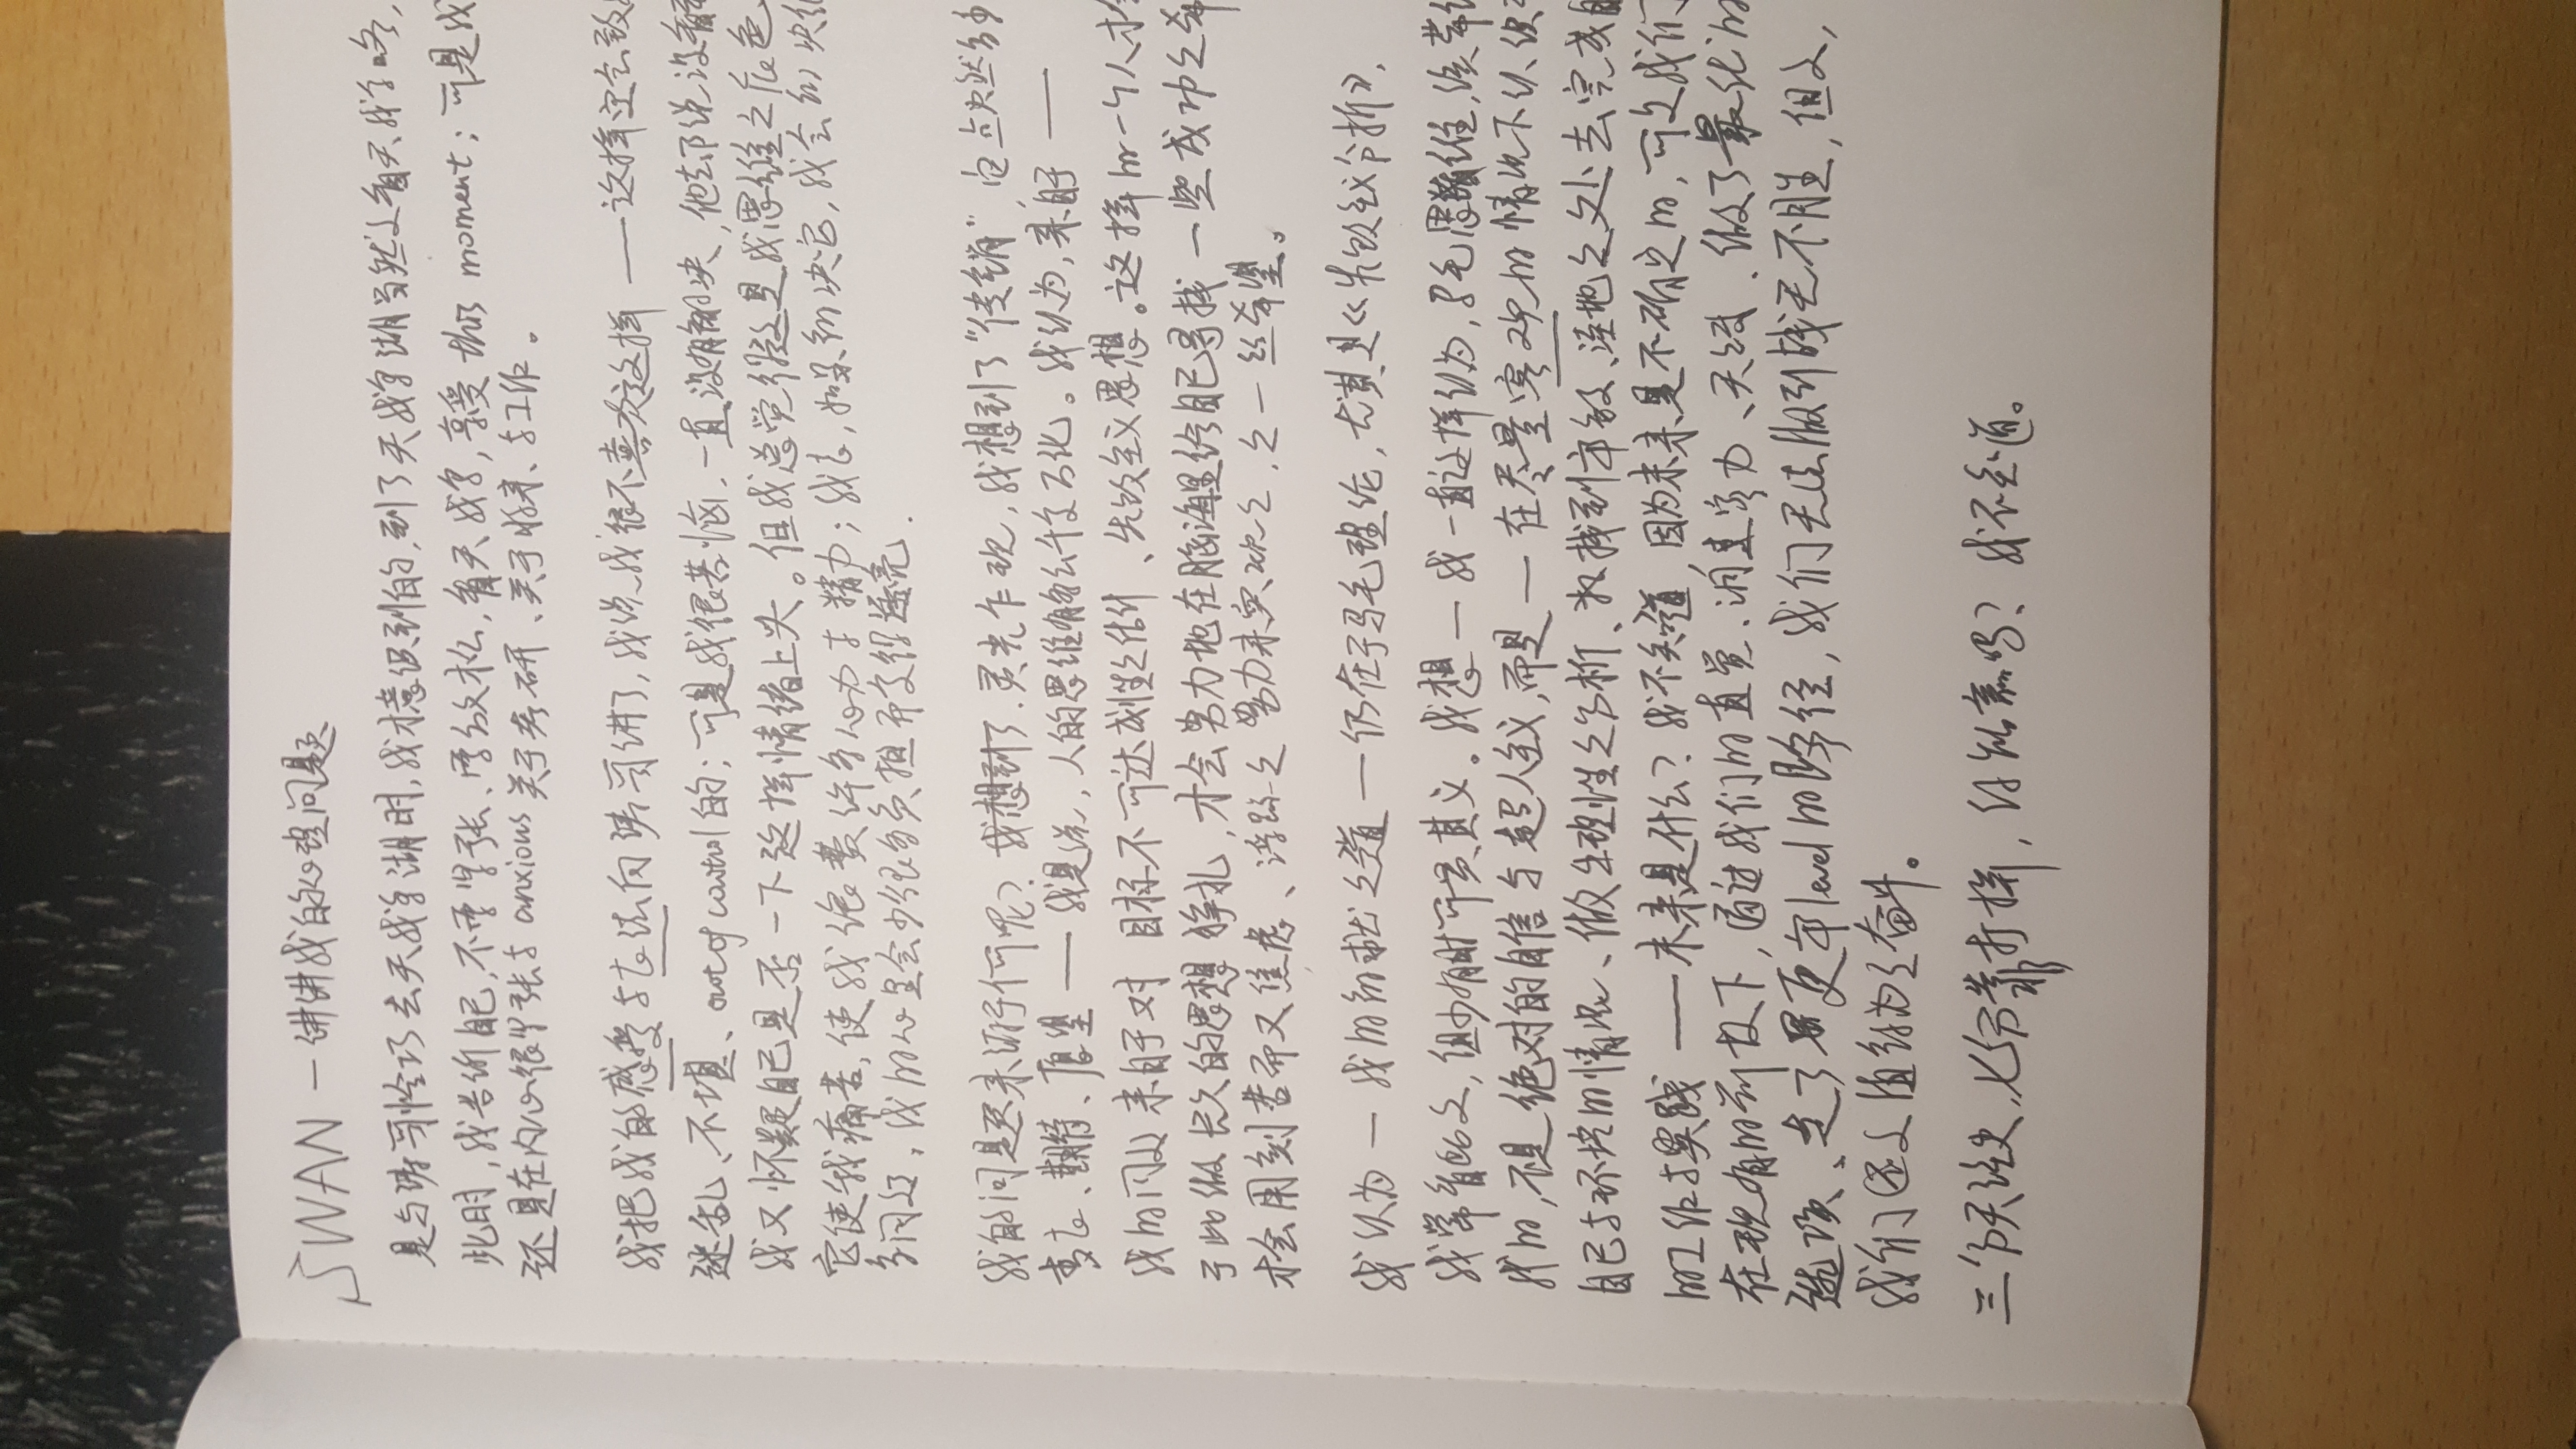 SWAN — 讲讲我的心理问题
是与涛哥恰巧去天鹅湖时,我才意识到的,到了天鹅湖当然是看天鹅咯,
此时,我告诉自己,不要紧张、要放松,看天鹅,享受 this moment;可是我
还是在内心很紧张与 anxious 关于考研、关于将来、与工作。
我把我的感受与想法向涛哥讲了,我说我很不喜欢这样 —— 这样它会致
迷乱、不堪、out of control 的;可是我很苦恼,一直没有解决,他却说没看
我又怀疑自己是否一下这样情绪上头。但我总觉得这是我思维之底色
它使我痛苦,使我浪费许多心力与精力;我想,如果解决它,我会解决
多问题,我的心里会少很多负担而变得透亮.
我的问题来源于何呢?我想到了.灵光乍现,我想到了“传销”,它点燃多少
梦想、期待、愿望 —— 我是说,人的思维有多么千变万化。我认为,来自于 ——
我的问题来自于对 目标不可达成性之估计、失败主义思想。这样的一个人才会
于此做长久的思想挣扎,才会努力地在脑海里给自己寻找一些成功之希
才会用刻苦而又焦虑、浮躁之努力来实现之,之一丝希望。
我认为 — 我的解救之道 — 仍在于马毛理论,尤其是《失败主义分析》,
我常看此文,但少有时可贯其义。我想 — 我一直这样认为,马毛思维,给带给
我的,不是绝对的自信与超人主义,而是 — 在尽量客观的情况下认识
自己与环境的情况、做出理性之分析、找到平缓、洼地之处去完成自
的工作与实践 —— 未来是什么?我不知道,因为未来是不确定的,可是我们
在现有的前提下,通过我们的直觉、洞察力、天赋、做了最优的
选项、走了更平level的路径,我们无法做到战无不胜,但是,
我们还是值得为之奋斗。
三分天注定,七分靠打拼,你能赢吗?我不知道。